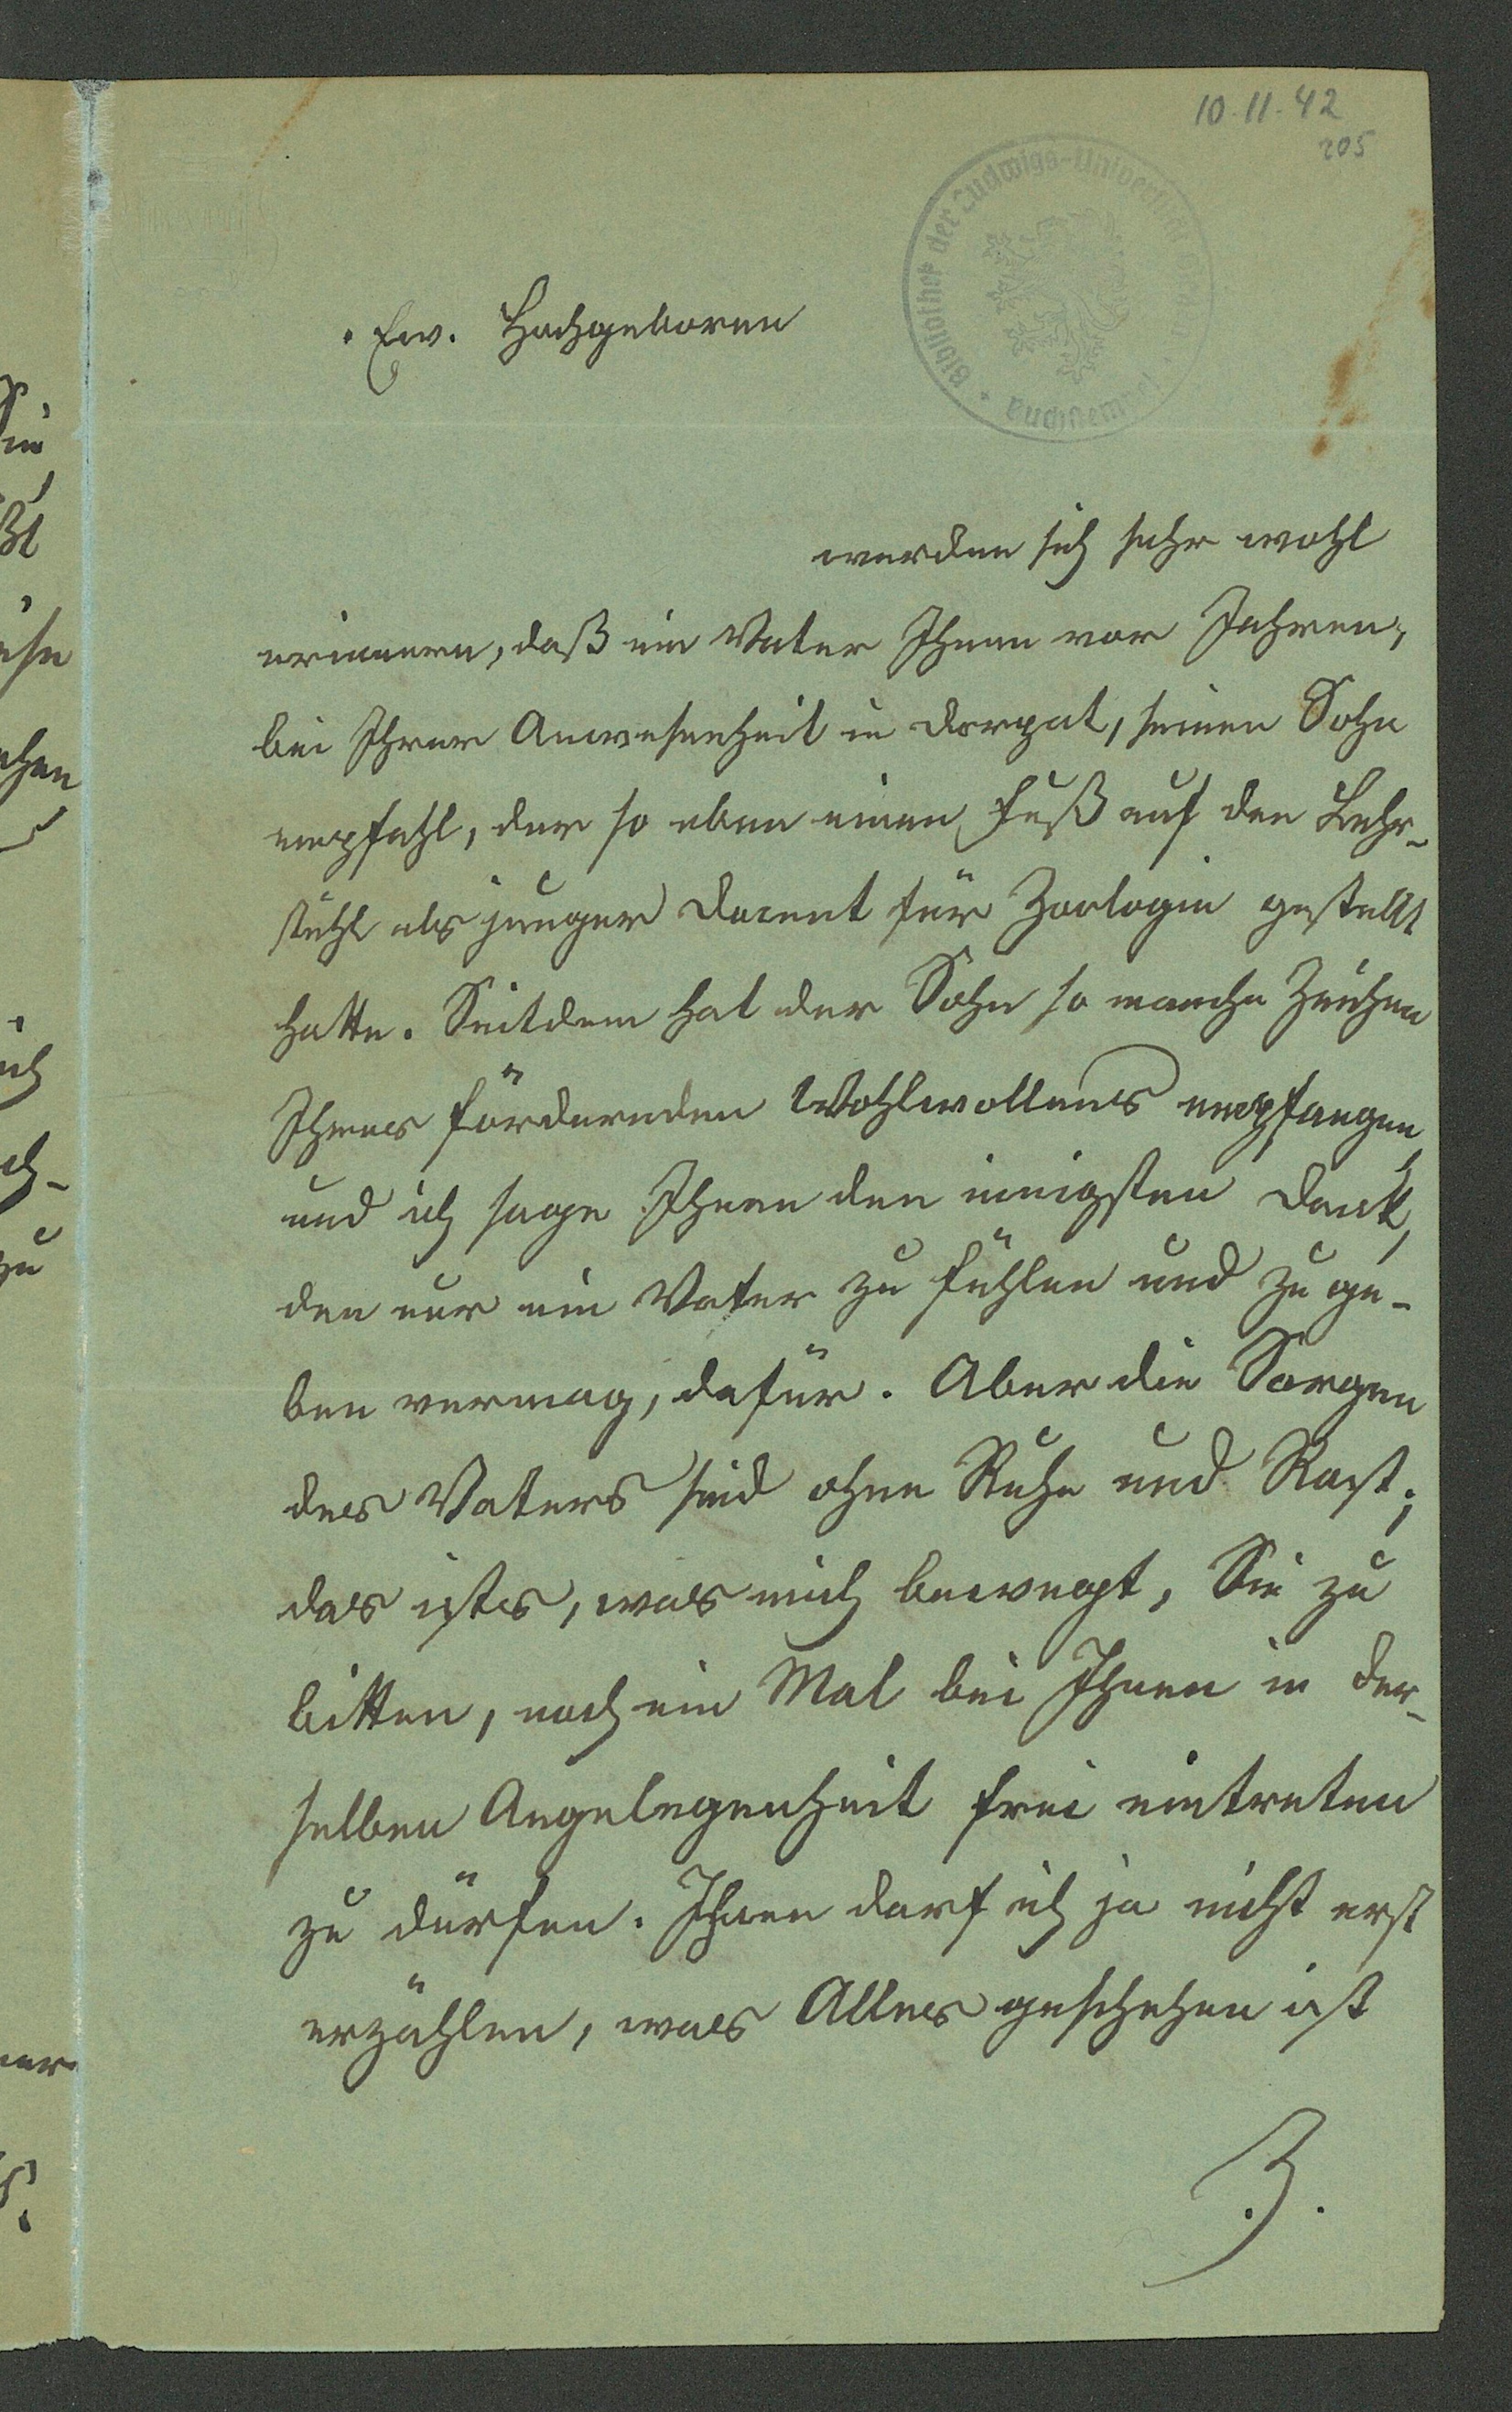 10.11.42
205
Bibliothek der Ludwigs-Universität
Buchstempel
Ew. Hochgeboren
werden sich sehr wohl
erinnern, daß ein Vater Ihnen vor Jahren,
bei Ihrer Anwesenheit in Dorpat, seinen Sohn
empfahl, der so eben einen Fuß auf den Lehr-
stuhl als junger Docent für Zoologie gestellt
hatte. Seitdem hat der Sohn so manche Zeichen
Ihres fördernden Wohlwollens empfangen
und ich sage Ihnen den innigsten Dank,
den nur ein Vater zu fühlen und zu ge-
ben vermag, dafür. Aber die Sorgen
des Vaters sind ohne Ruhe und Rast;
das ists, was mich bewegt, Sie zu
bitten, noch ein Mal bei Ihnen in der-
selben Angelegenheit frei eintreten
zu dürfen. Ihnen darf ich ja nicht erst
erzählen, was Alles geschehen ist